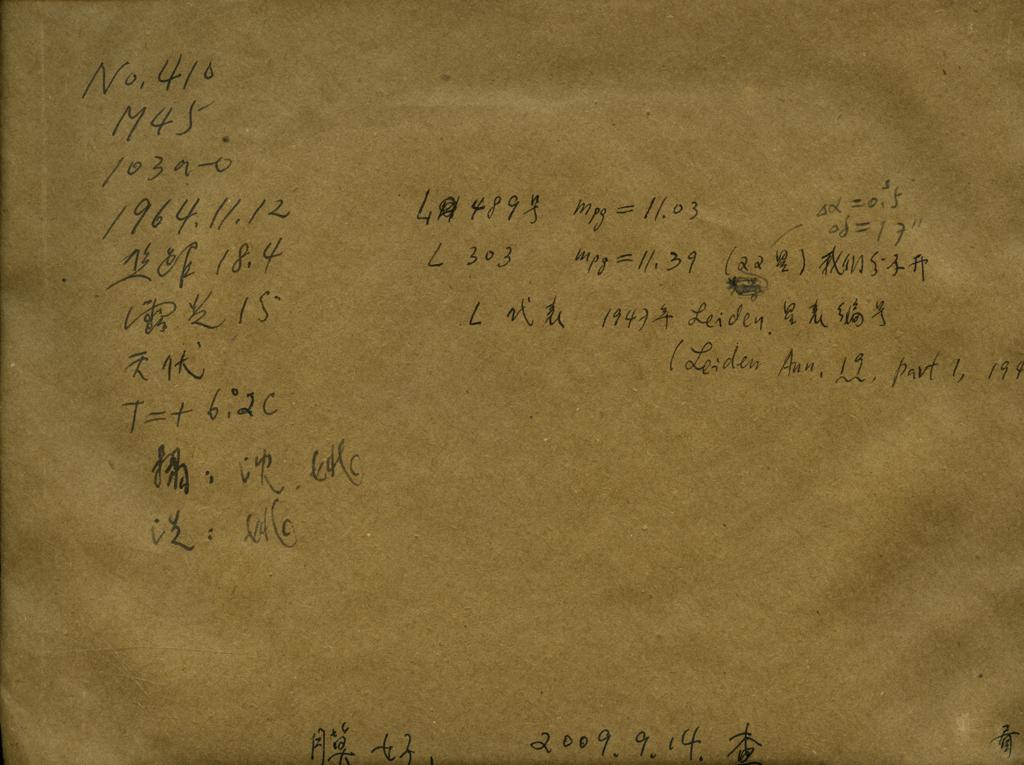 No. 410
M45
103a-o
1964.11.12
焦距 18.4
露光 15
天伏
T=+6.°2C
摄: 沈. 姚
洗: 姚
L 489号 mpg = 11.03
Δα = 0.ˢ5
Δδ = 17"
L 303 mpg = 11.39 (双星) 我们分不开
L 代表 1947年 Leiden. 星表编号
(Leiden Ann. 19, part 1, 194
膜好. 2009.9.14. 查